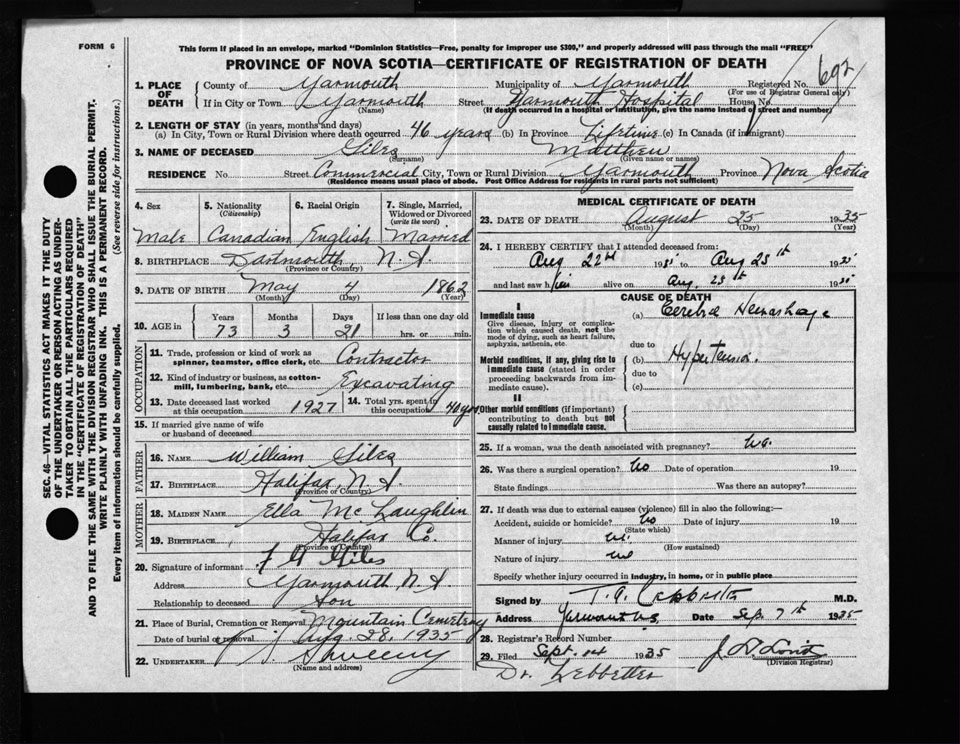 FORM 6
This form if placed in an envelope, marked "Dominion Statistics—Free, penalty for improper use $300," and properly addressed will pass through the mail "FREE"
PROVINCE OF NOVA SCOTIA—CERTIFICATE OF REGISTRATION OF DEATH
692
1. PLACE OF DEATH County of Yarmouth Municipality of Yarmouth Registered No.
(For use of Registrar General only)
If in City or Town Yarmouth Street Yarmouth Hospital House No.
(Name) (If death occurred in a hospital or institution, give the name instead of street and number)
2. LENGTH OF STAY (in years, months and days)
(a) In City, Town or Rural Division where death occurred 46 years (b) In Province Lifetime (c) In Canada (if immigrant)
3. NAME OF DECEASED Giles Matthew
(Surname) (Given name or names)
RESIDENCE No. Street Commercial City, Town or Rural Division Yarmouth Province Nova Scotia
(Residence means usual place of abode. Post Office Address for residents in rural parts not sufficient)
SEC. 46—VITAL STATISTICS ACT MAKES IT THE DUTY
OF THE UNDERTAKER OR PERSON ACTING AS UNDER-
TAKER TO OBTAIN ALL THE PARTICULARS REQUIRED
IN THE "CERTIFICATE OF REGISTRATION OF DEATH"
AND TO FILE THE SAME WITH THE DIVISION REGISTRAR WHO SHALL ISSUE THE BURIAL PERMIT.
WRITE PLAINLY WITH UNFADING INK. THIS IS A PERMANENT RECORD.
Every item of information should be carefully supplied. (See reverse side for instructions.)
4. Sex 5. Nationality (Citizenship) 6. Racial Origin 7. Single, Married, Widowed or Divorced (write the word)
Male Canadian English Married
8. BIRTHPLACE Dartmouth, N.S.
(Province or Country)
9. DATE OF BIRTH May 4 1862
(Month) (Day) (Year)
10. AGE in Years Months Days If less than one day
73 3 21 hrs. or min.
OCCUPATION
11. Trade, profession or kind of work as spinner, teamster, office clerk, etc. Contractor
12. Kind of industry or business, as cotton-mill, lumbering, bank, etc. Excavating
13. Date deceased last worked at this occupation 1927 14. Total yrs. spent in this occupation 40 yrs
15. If married give name of wife or husband of deceased
FATHER
16. NAME William Giles
17. BIRTHPLACE Halifax, N.S.
(Province or Country)
MOTHER
18. MAIDEN NAME Ella McLaughlin
19. BIRTHPLACE Halifax Co.
(Province or Country)
20. Signature of informant Giles
Address Yarmouth N.S.
Relationship to deceased Son
21. Place of Burial, Cremation or Removal Mountain Cemetery
Date of burial or removal Aug. 28, 1935
22. UNDERTAKER Sweeny
(Name and address)
MEDICAL CERTIFICATE OF DEATH
23. DATE OF DEATH August 25 1935
(Month) (Day) (Year)
24. I HEREBY CERTIFY that I attended deceased from:
Aug 22nd 1935 to Aug 25th 1935
and last saw him alive on Aug. 25th 1935
CAUSE OF DEATH
I
Immediate cause
Give disease, injury or complication which caused death, not the mode of dying, such as heart failure, asphyxia, asthenia, etc.
(a) Cerebral Hemorrhage
due to
Morbid conditions, if any, giving rise to immediate cause (stated in order proceeding backwards from immediate cause).
(b) Hypertension.
due to
(c)
II
Other morbid conditions (if important) contributing to death but not causally related to immediate cause.
25. If a woman, was the death associated with pregnancy? No.
26. Was there a surgical operation? No Date of operation 19
State findings Was there an autopsy?
27. If death was due to external causes (violence) fill in also the following:—
Accident, suicide or homicide? No Date of injury 19
(State which)
Manner of injury
(How sustained)
Nature of injury
Specify whether injury occurred in industry, in home, or in public place
Signed by M.D.
Address Yarmouth N.S. Date Sep. 7th 1935
28. Registrar's Record Number
29. Filed Sept. 1935
(Division Registrar)
Dr. Lebbetter